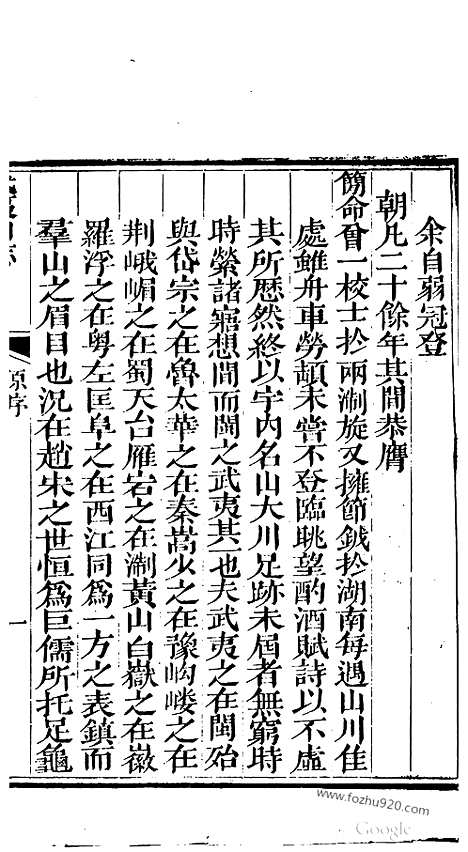 余自弱冠登
朝凡二十餘年其間恭膺
簡命曾一校士扵兩淛旋又擁節鉞扵湖南每遇山川佳
處雖舟車勞頓未嘗不登臨眺望酌酒賦詩以不虛
其所歷然終以宇内名山大川足跡未屆者無窮時
時縈諸寤想間而閩之武夷其一也夫武夷之在閩殆
與岱宗之在魯太華之在秦嵩少之在豫岣嶁之在
荆峨嵋之在蜀天台雁宕之在淛黃山白嶽之在徽
羅浮之在粤左匡阜之在西江同爲一方之表鎭而
羣山之眉目也況在趙宋之世恒爲巨儒所托足龜
原序
一
www.fozhu920.com
Google